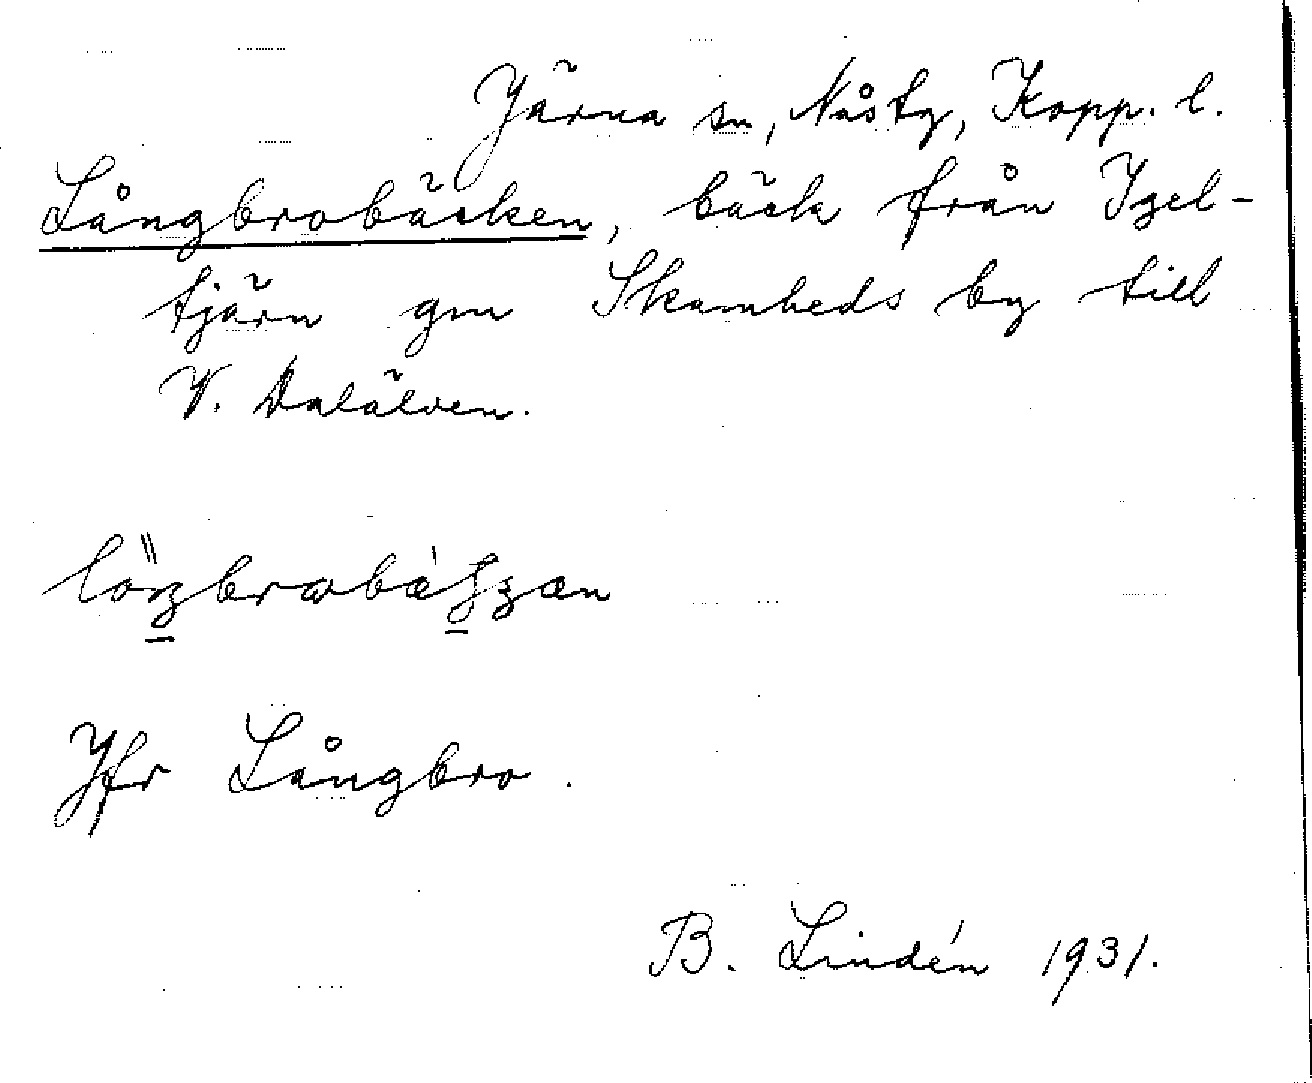 Järna sn, Nås tg, Kopp. l.
Långbrobäcken, bäck från Igel-
tjärn gm Skamheds by till
V. Dalälven.
Jfr Långbro.
B. Lindén 1931.